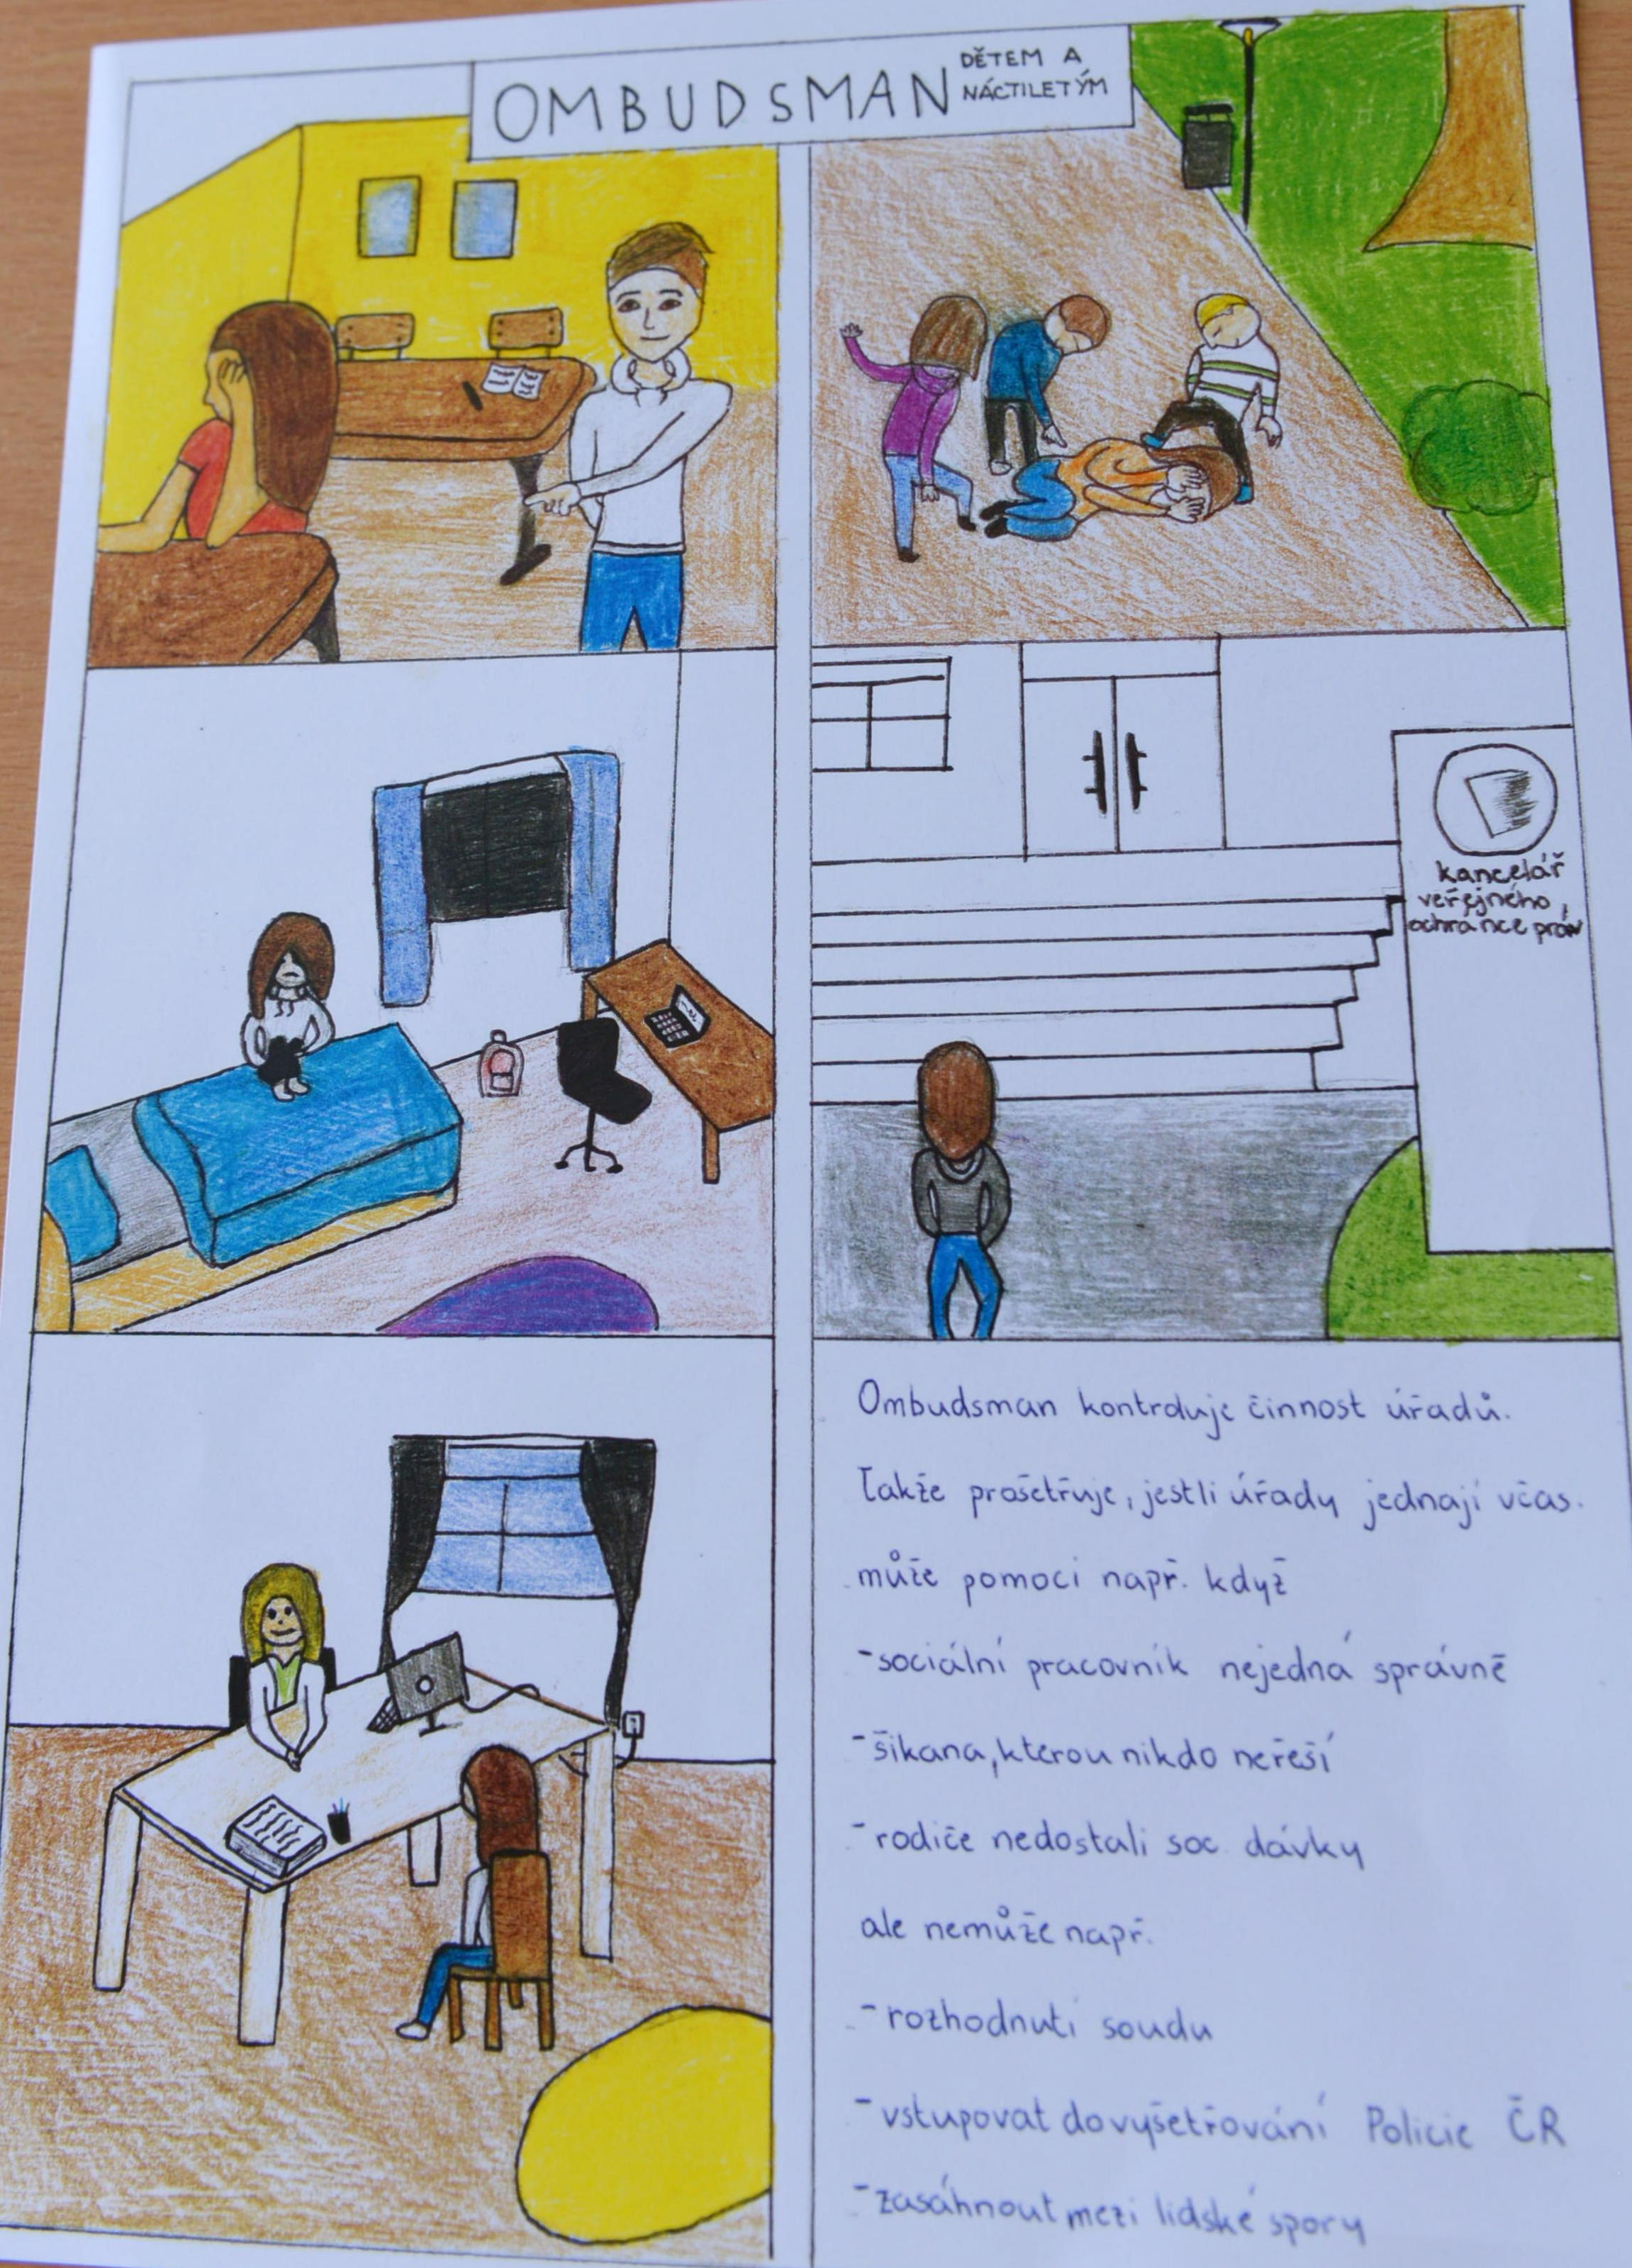 OMBUDSMAN
DĚTEM A
NÁCTILETÝM
kancelář
veřejného
ochrance práv
Ombudsman kontroluje činnost úřadů.
Takže prošetřuje, jestli úřady jednají včas.
může pomoci např. když
- sociální pracovník nejedná správně
- šikana, kterou nikdo neřeší
- rodiče nedostali soc. dávky
ale nemůže např.
- rozhodnutí soudu
- vstupovat do vyšetřování Policie ČR
- zasáhnout mezi lidské spory